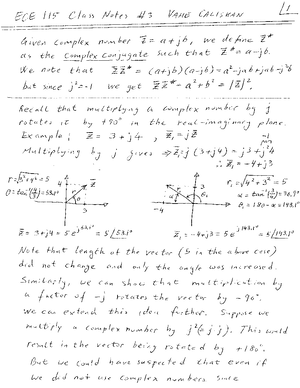 ECE 115 Class Notes #3 VAHE CALISKAN
L1
Given complex number z̄ = a+jb, we define z̄*
as the Complex Conjugate such that z̄* = a-jb.
We note that z̄z̄* = (a+jb)(a-jb) = a²-jab+jab-j²b²
but since j²=-1 we get z̄z̄* = a²+b² = |z̄|².
Recall that multiplying a complex number by j
rotates it by +90° in the real-imaginary plane.
Example: z̄ = 3+j4 z̄₁ = jz̄
Multiplying by j gives ⇒ z̄₁ = j(3+j4) = j3+j²4
∴ z̄₁ = -4+j3
z̄ = 3+j4 = 5e^j53.1° = 5∠53.1°
z̄₁ = -4+j3 = 5e^j143.1° = 5∠143.1°
Note that length of the vector (5 in the above case)
did not change and only the angle was increased.
Similarly, we can show that multiplication by
a factor of -j rotates the vector by -90°.
We can extend this idea further. Suppose we
multiply a complex number by j² (a j·j). This would
result in the vector being rotated by +180°.
But we could have suspected that even if
we did not use complex numbers since